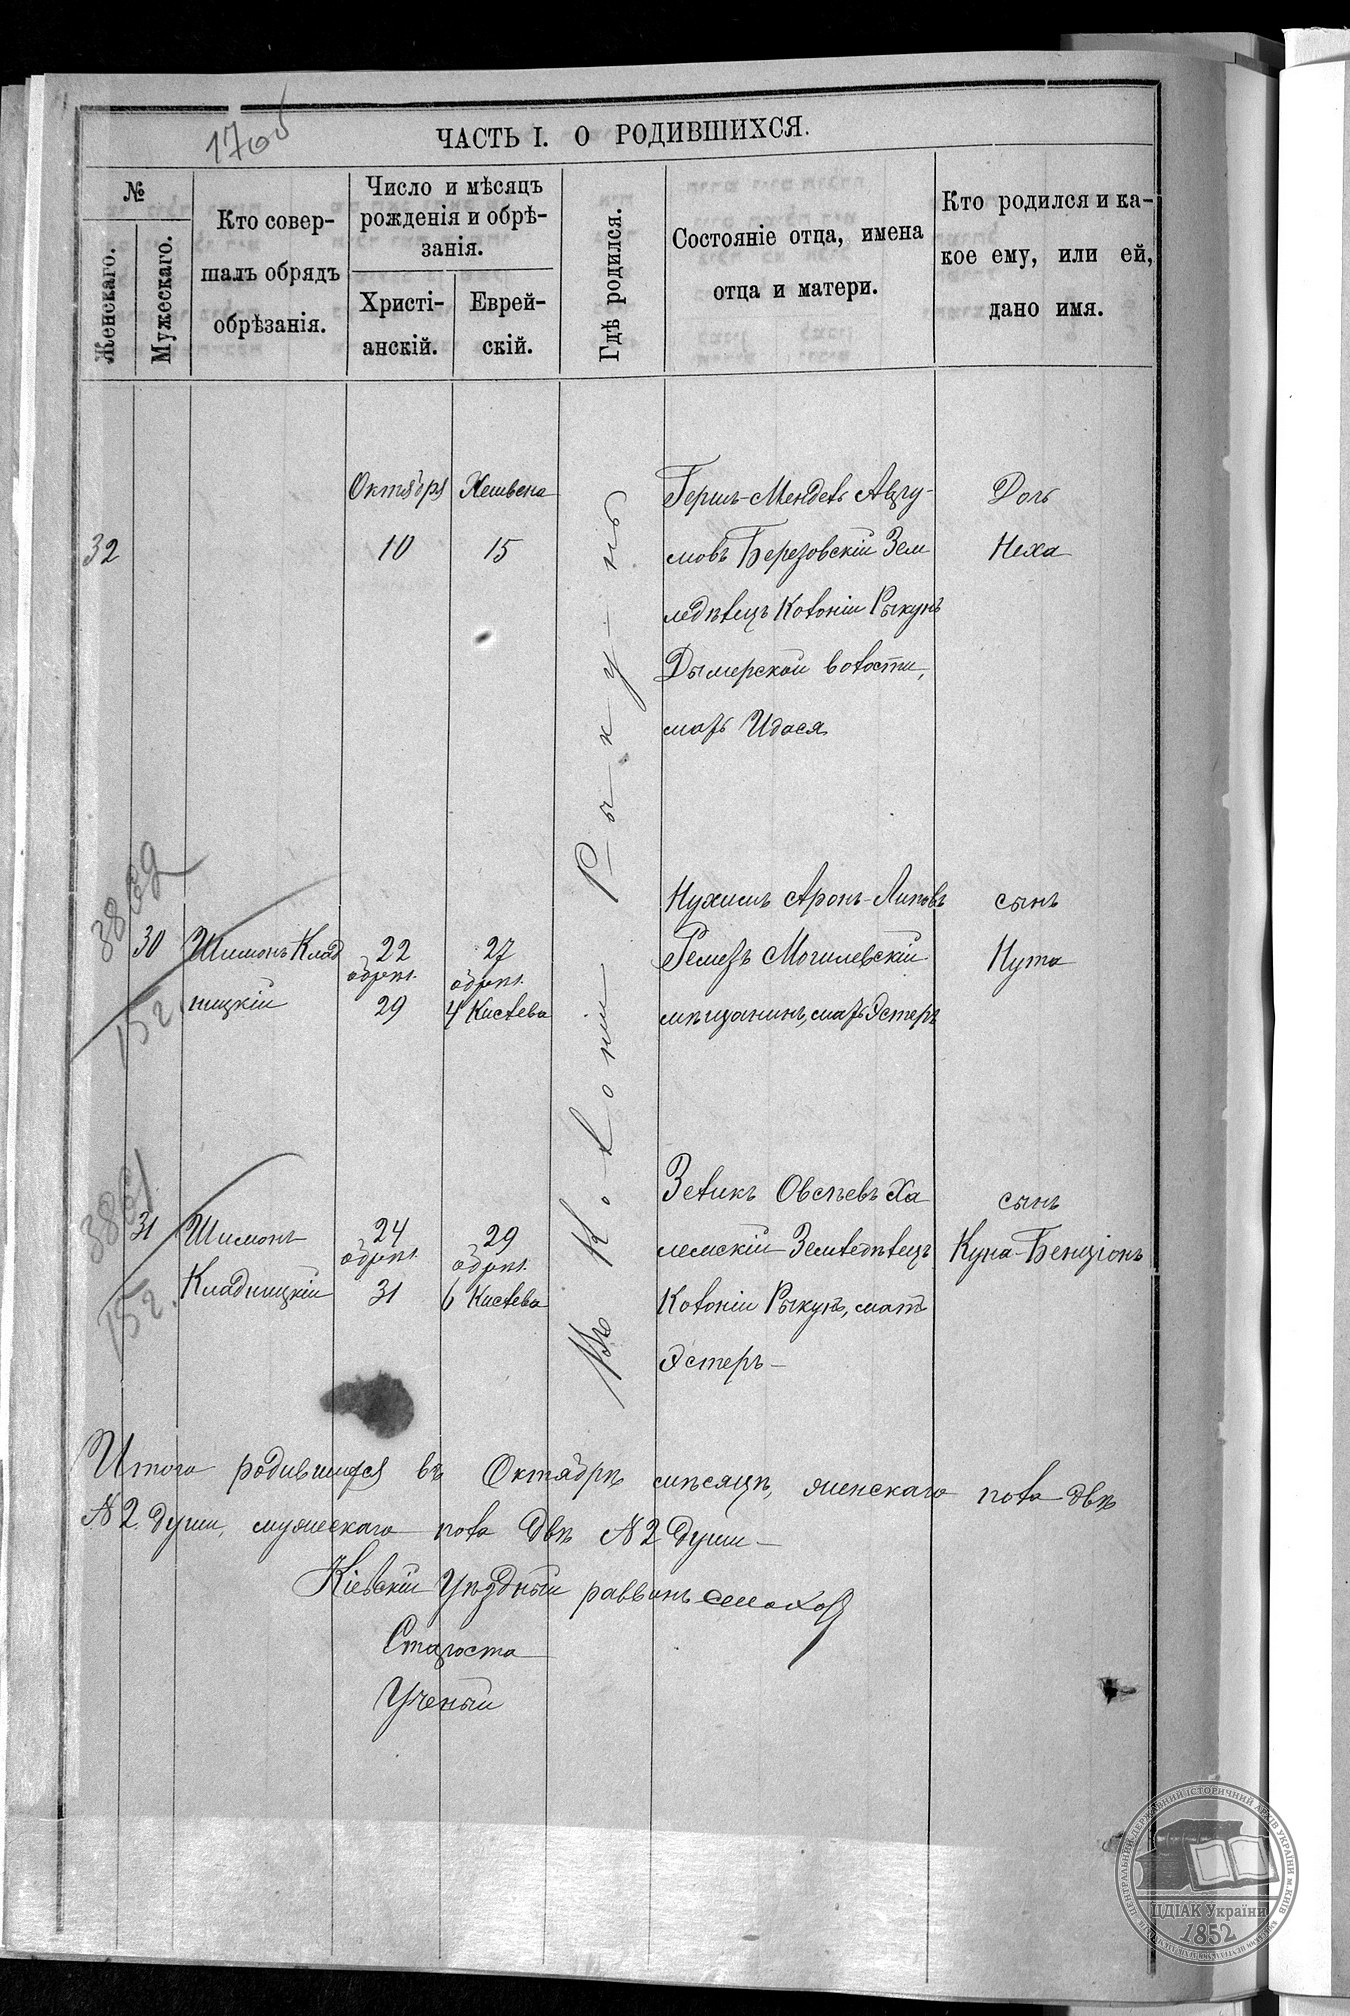 170
ЧАСТЬ I. О РОДИВШИХСЯ.
№
Женскаго.
Мужескаго.
Кто совер-
шалъ обрядъ
обрѣзанія.
Число и мѣсяцъ
рожденія и обрѣ-
занія.
Христі-
анскій.
Еврей-
скій.
Гдѣ родился.
Состояніе отца, имена
отца и матери.
Кто родился и ка-
кое ему, или ей,
дано имя.
Октября Хешвена
32 10 15
Гершъ-Мендель Авгу-
мовъ Березовскій Зем
ледѣлецъ Колоніи Рыкунь
Дымерской волости,
мать Идася
Дочь
Неха
Въ Колоніи Рыкунь
30 Шимонъ Клад
ницкій
22
обрѣз.
29
27
обрѣз.
4 Кислева
Нухимъ Аронъ-Липовъ
Ремезъ Могилевскій
мѣщанинъ, мать Эстеръ
сынъ
Нута
152.
31 Шимонъ
Кладницкій
24
обрѣз.
31
29
обрѣз.
6 Кислева
Зеликъ Овсѣевъ Ха
лемскій Земледѣлецъ
Колоніи Рыкунь, мать
Эстеръ-
сынъ
Куна-Бенціонъ
152.
Итого родившихся въ Октябрѣ мѣсяцѣ, женскаго пола двѣ
№ 2. души, мужескаго пола двѣ № 2 души-
Кіевскій Уѣздный раввинъ
Староста
Ученый
ЦЕНТРАЛЬНИЙ ДЕРЖАВНИЙ ІСТОРИЧНИЙ АРХІВ УКРАЇНИ м. КИЇВ
ЦДІАК України
1852